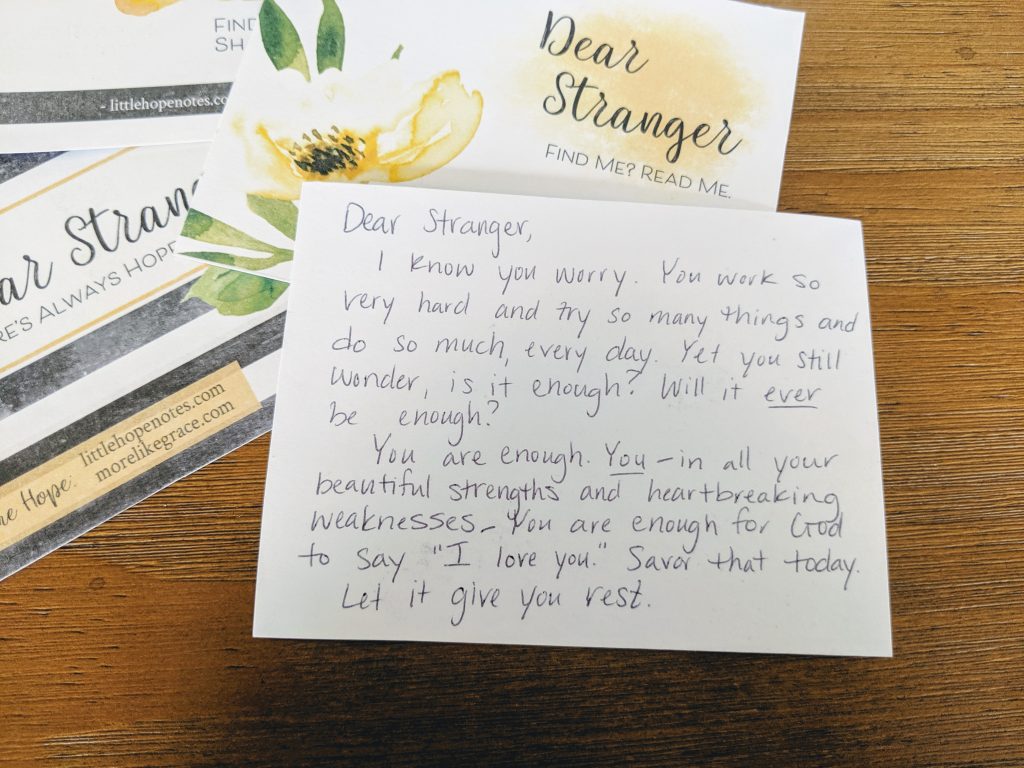 FIND
SH
- littlehopenotes.co
Dear
Stranger
FIND ME? READ ME.
ar Strang
RE'S ALWAYS HOPE
ne Hope:
littlehopenotes.com
morelikegrace.com
Dear Stranger,
I know you worry. You work so
very hard and try so many things and
do so much, every day. Yet you still
wonder, is it enough? Will it ever
be enough?
You are enough. You - in all your
beautiful strengths and heartbreaking
weaknesses - You are enough for God
to say "I love you." Savor that today.
Let it give you rest.